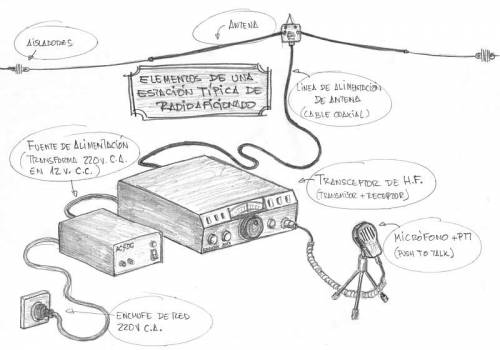 AISLADORES
ANTENA
ELEMENTOS DE UNA
ESTACIÓN TÍPICA DE
RADIOAFICIONADO
LÍNEA DE ALIMENTACIÓN
DE ANTENA
(CABLE COAXIAL)
FUENTE DE ALIMENTACIÓN
(TRANSFORMA 220 V. C.A.
EN 12 V. C.C.)
TRANSCEPTOR DE H.F.
(TRANSMISOR + RECEPTOR)
AC/DC
MICRÓFONO + PTT
(PUSH TO TALK)
ENCHUFE DE RED
220 V C.A.